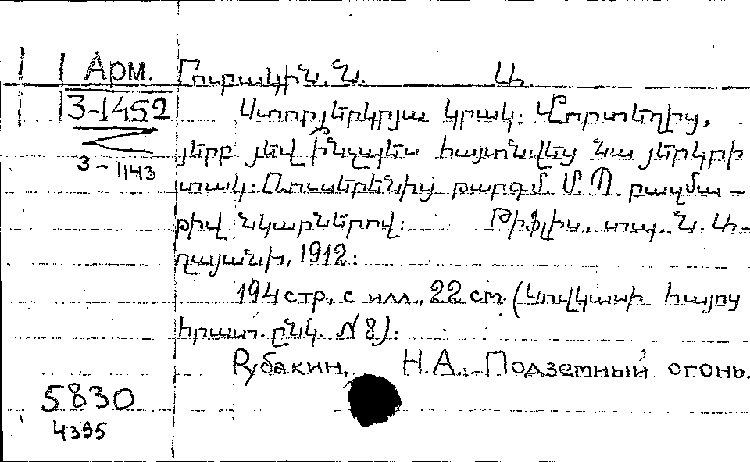 Арм. Րուբակին, Ն. Ա.
3-1452 Ստորյերկրյա կրակ: Վորտեղից,
յերբ յեվ ինչպես հայտնվեց նա յերկրի
3-1143
տակ: Ռուսերենից թարգմ. Մ. Պ. բազմա-
թիվ նկարներով: Թիֆլիս, տպ. Ն. Ա-
ղանյանի, 1912:
194 стр. с илл., 22 см (Կովկասի հայոց
հրատ. ընկ. N 8):
Рубакин, Н.А. Подземный огонь.
5830
4395